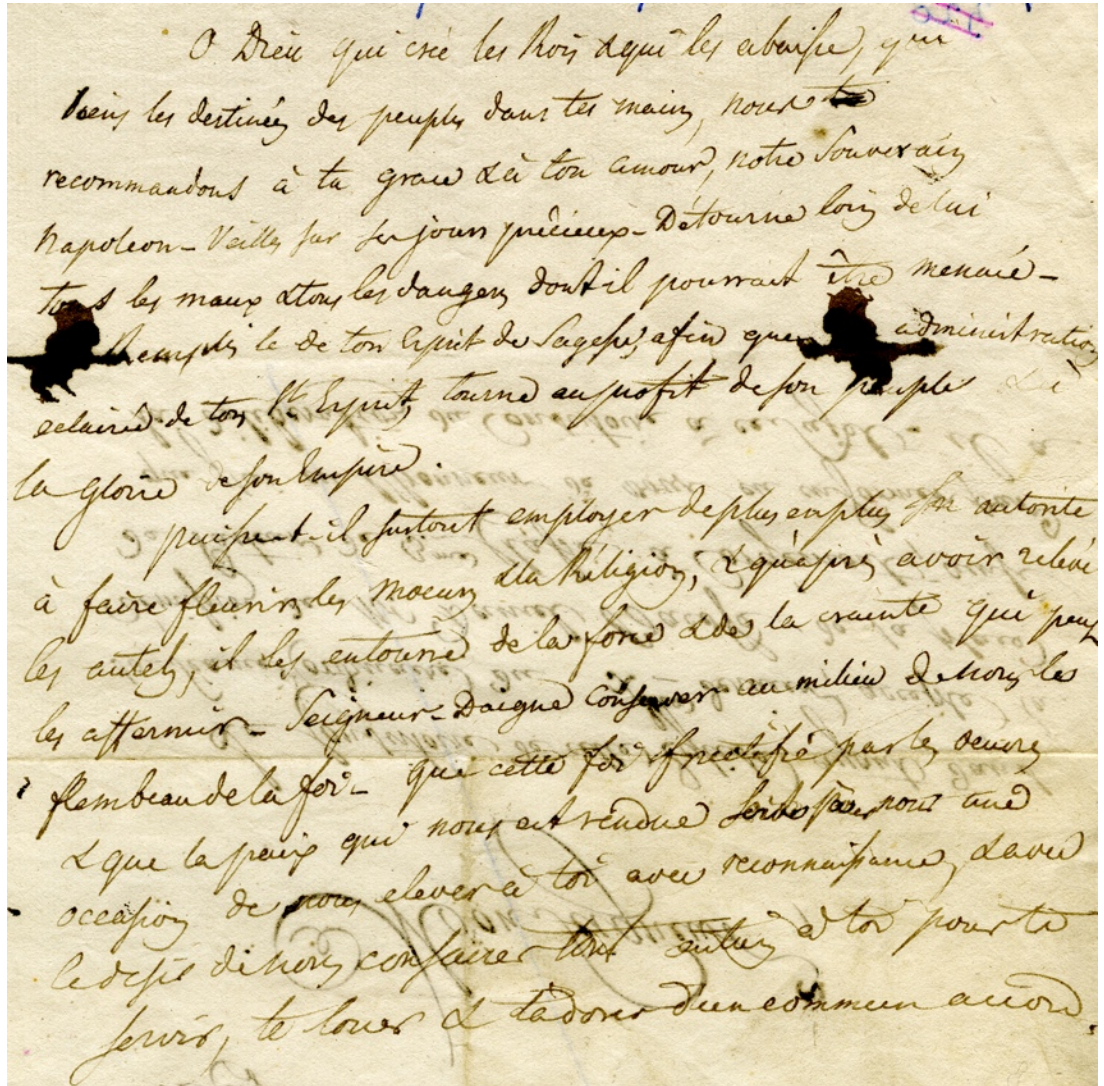 O Dieu qui crée les Rois & qui les abaisse, qui
tiens les destinées des peuples dans tes mains, nous te
recommandons à ta grace & à ton amour, notre Souverain
Napoleon - Veilles sur ses jours précieux - Détourne loin de lui
tous les maux & tous les dangers dont il pourrait être menacé -
Remplis le de ton Esprit de Sagesse, afin que administration
eclairée de ton St Esprit, tourne au profit de son peuple & à
la gloire de son Empire.
puisse-t-il surtout employer de plus en plus son autorité
à faire fleurir les moeurs & la Réligion, & qu'après avoir relevé
les autels, il les entoure de la force & de la crainte qui peux
les affermir - Seigneur - Daigne conserver au milieu de nous les
flambeau de la foi - que cette foi fructifie par les oeuvres
& que la paix qui nous est rendue soit pour nous une
occasion de nous elever à toi avec reconnaissance, & avec
le desir de nous consacrer tout entiers à toi pour te
servir, te louer & t'adorer d'un commun accord.